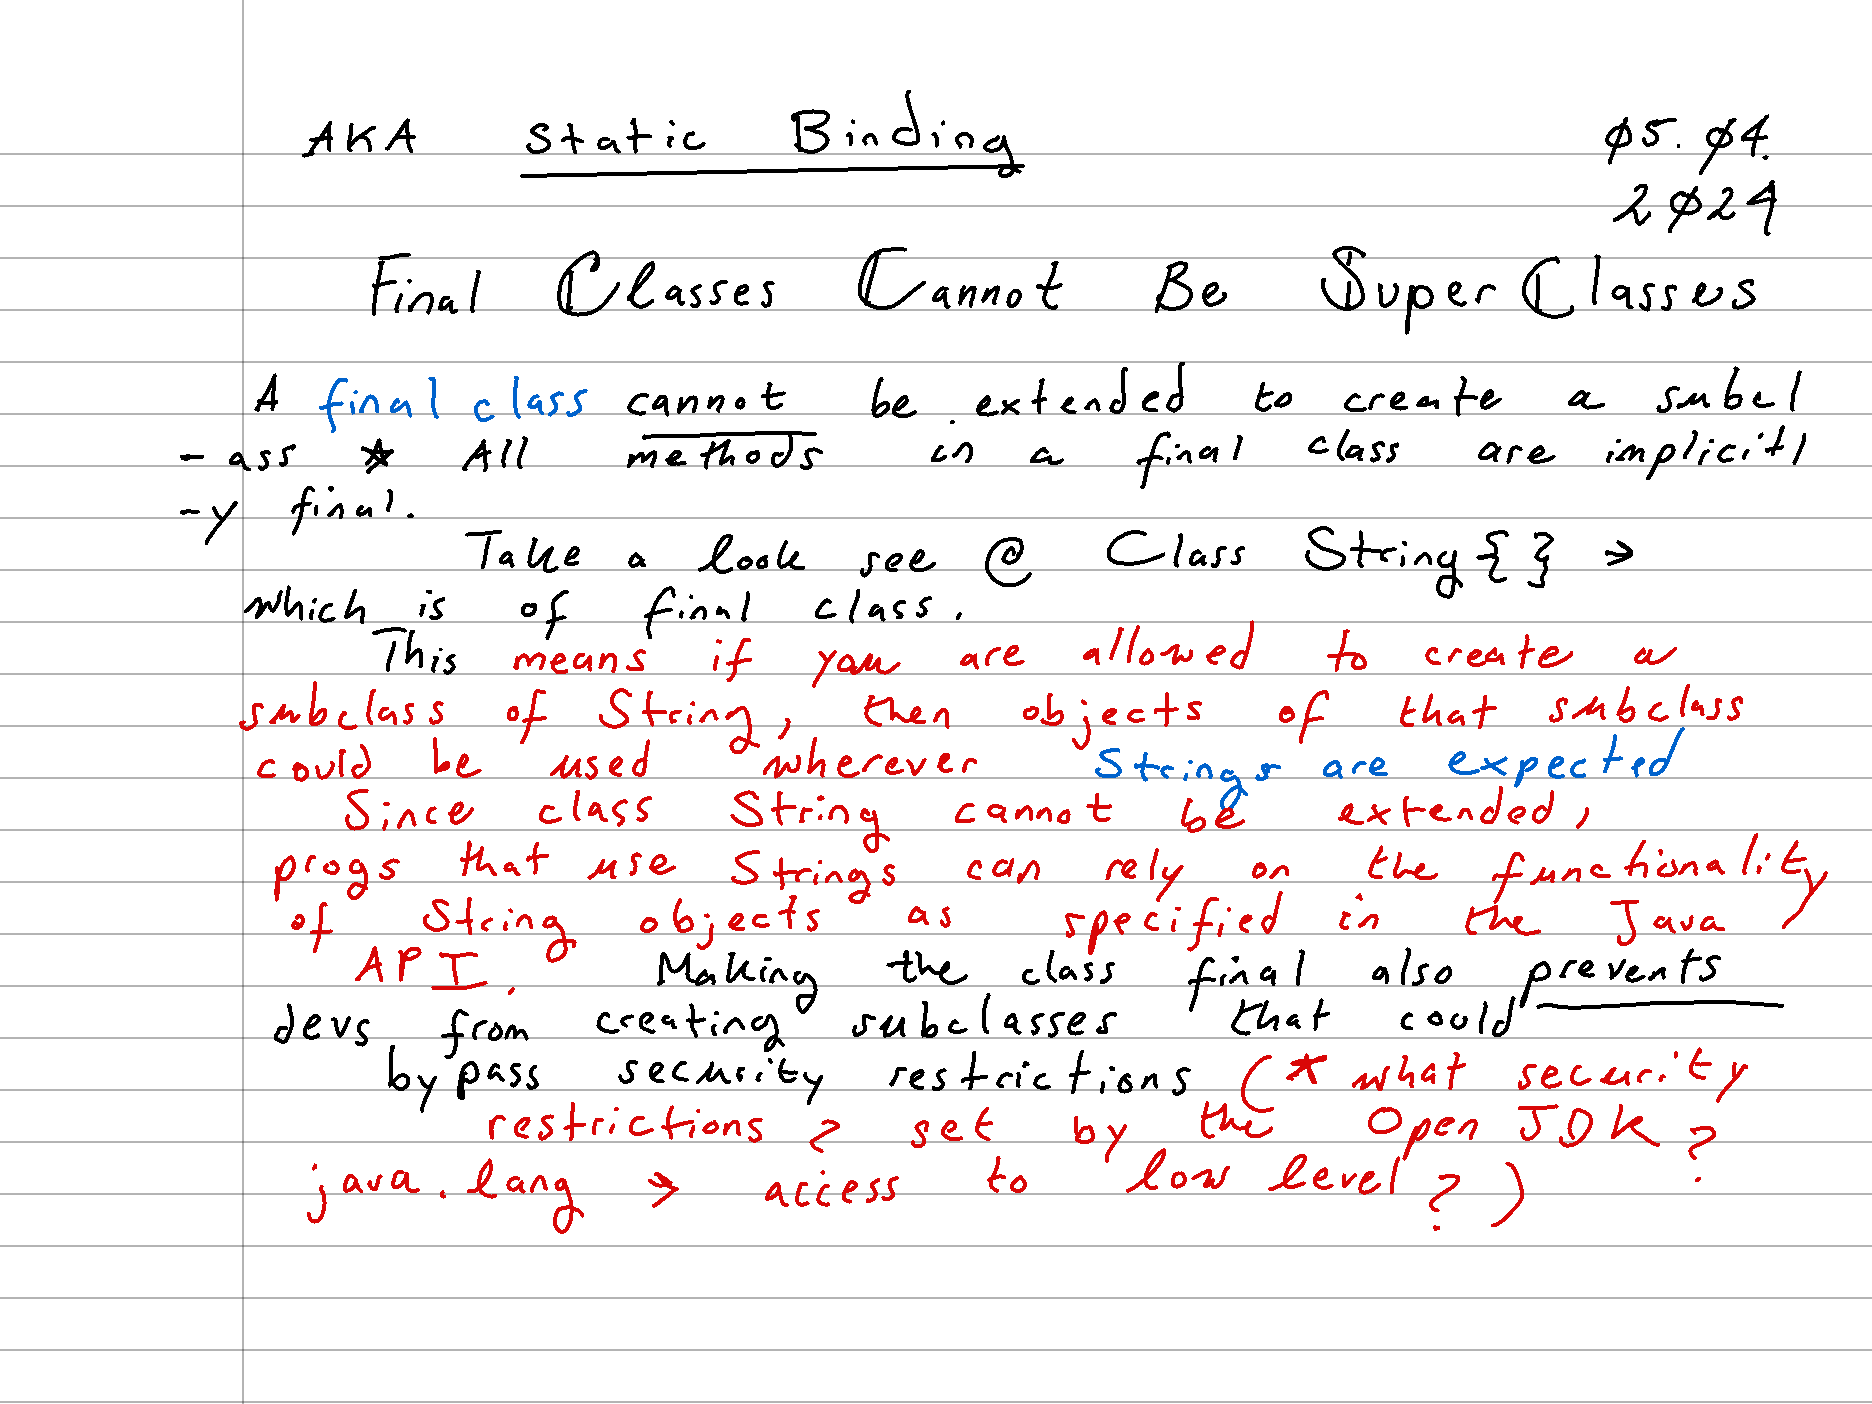 AKA Static Binding
ø5. ø4.
2ø24
Final Classes Cannot Be SuperClasses
A final class cannot be extended to create a subcl
- ass ★ All methods in a final class are implicitl
-y final.
Take a look see @ Class String { } →
which is of final class.
This means if you are allowed to create a
subclass of String, then objects of that subclass
could be used wherever Strings are expected
Since class String cannot be extended,
progs that use Strings can rely on the functionality
of String objects as specified in the Java
API. Making the class final also prevents
devs from creating subclasses that could
bypass security restrictions (* what security
restrictions ? set by the Open JDK ?
java.lang → access to low level ? )